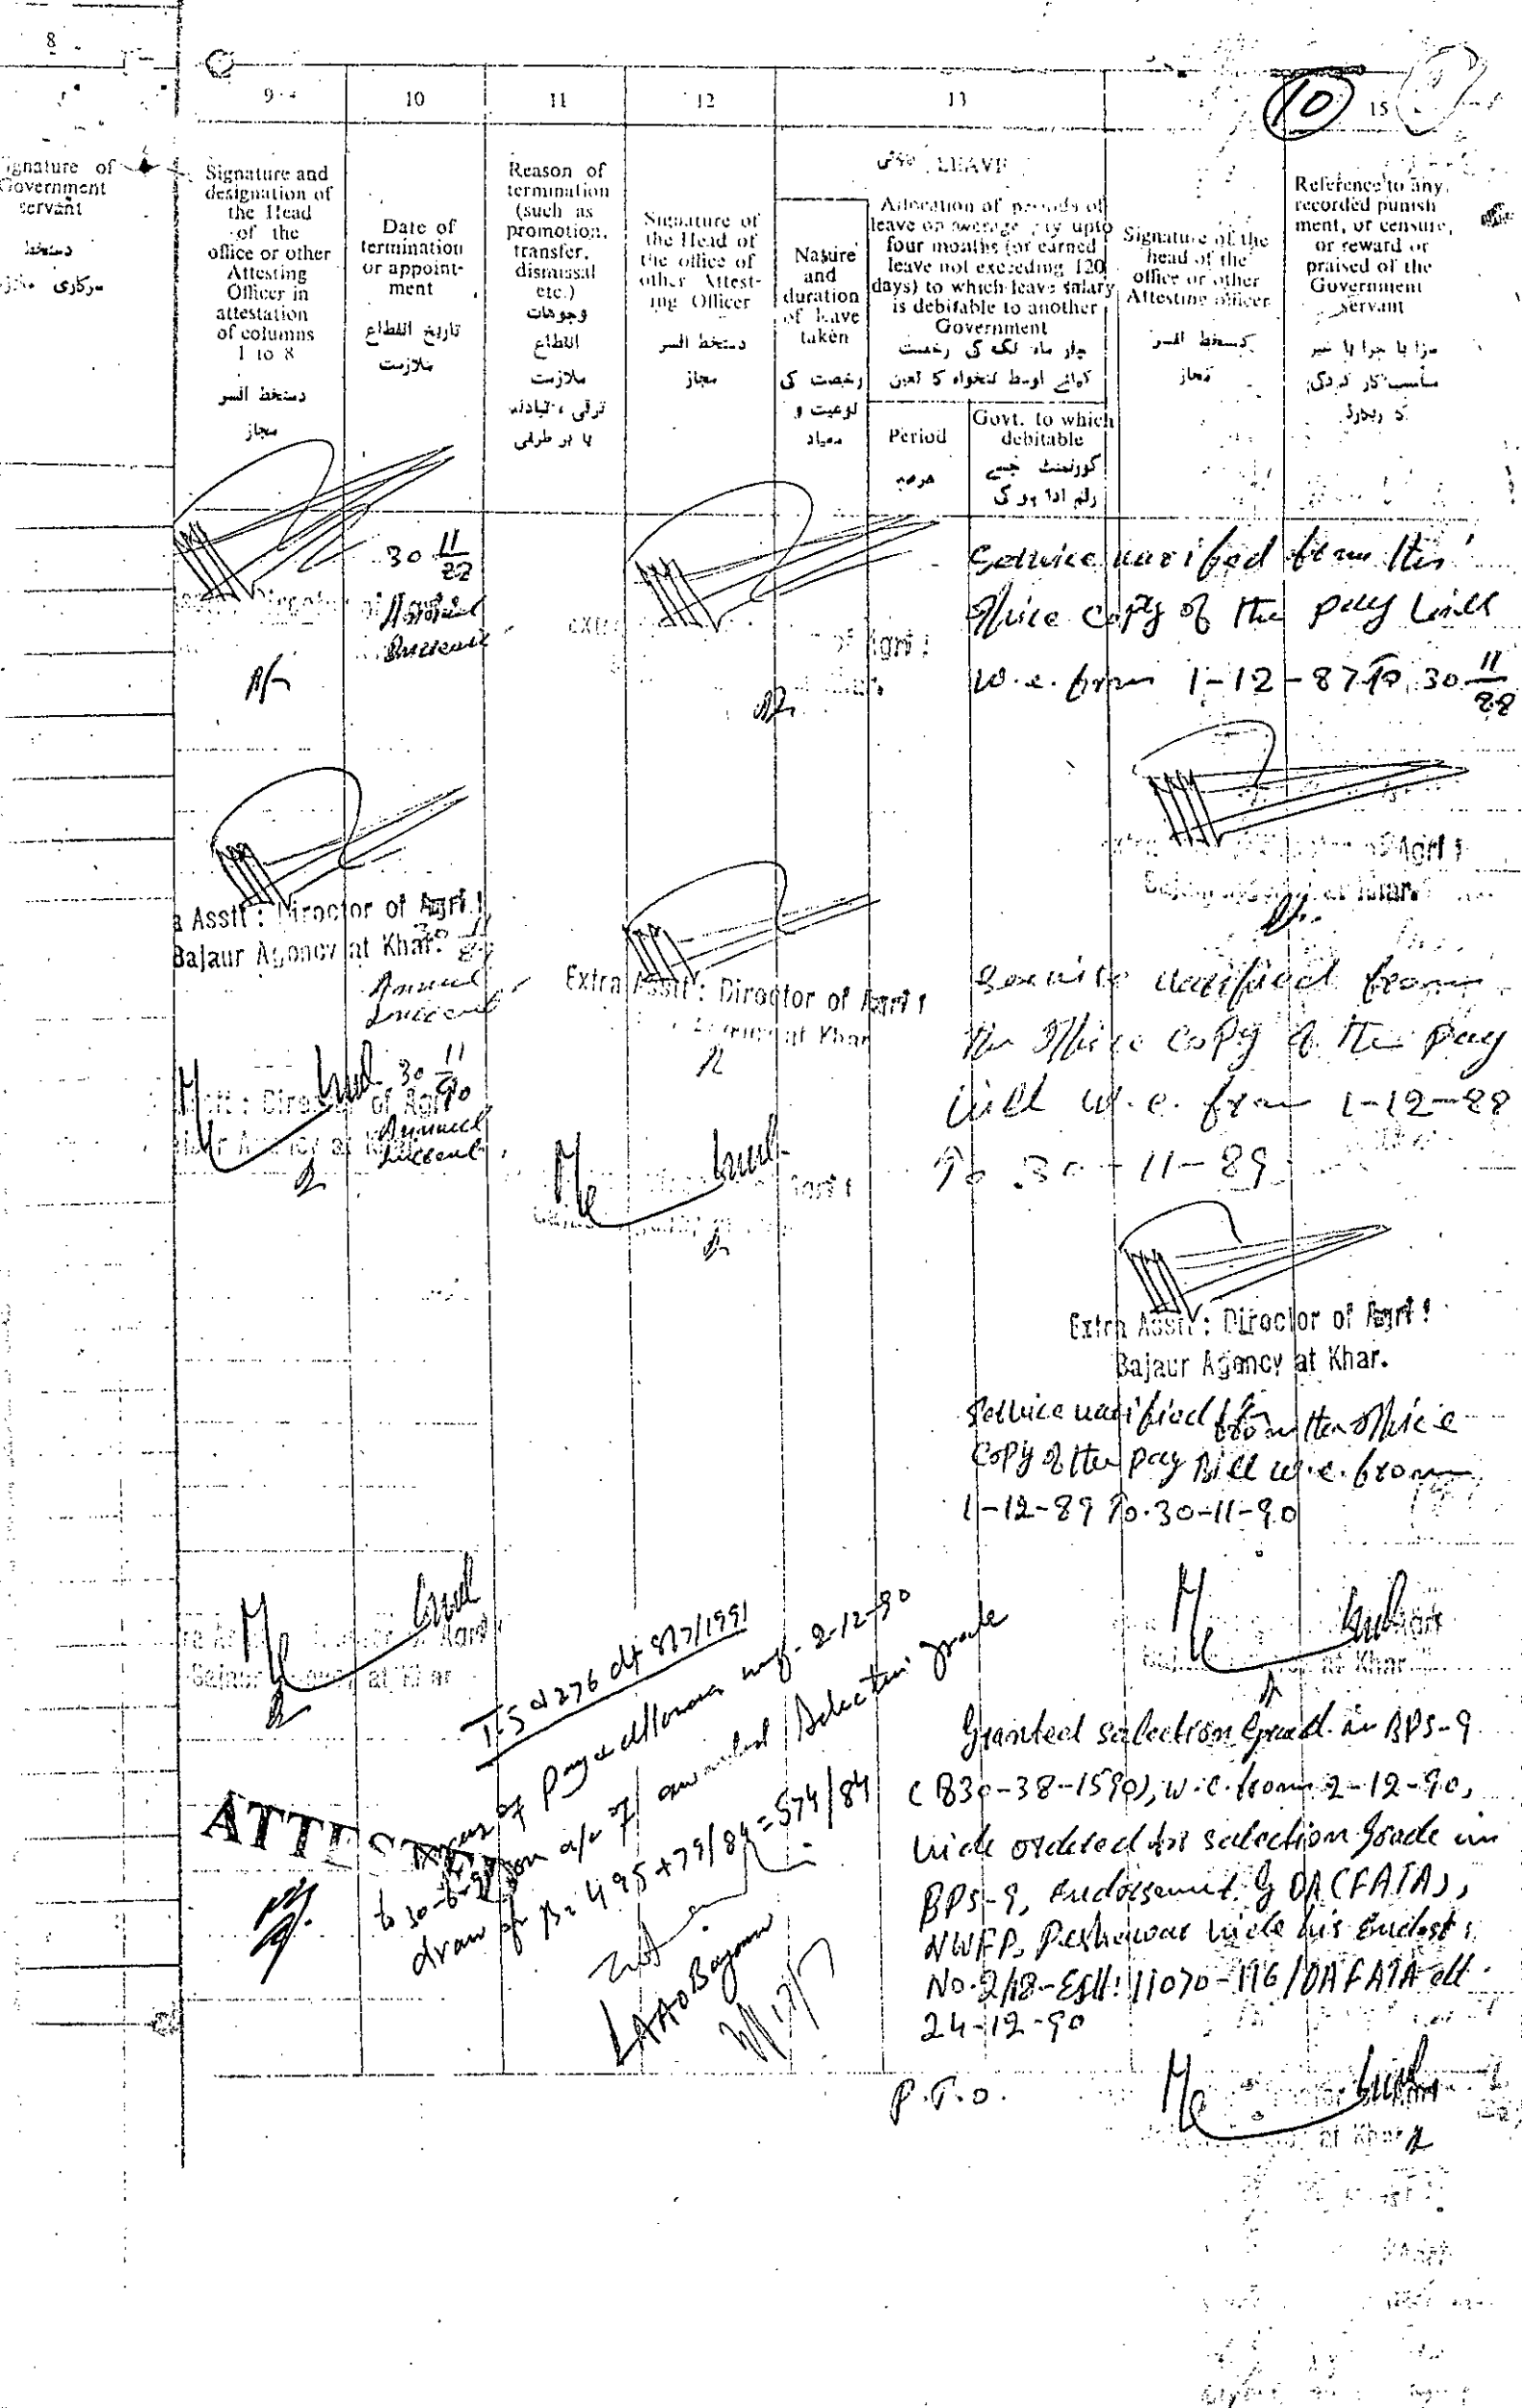 8
9
10
11
12
13
10
15
Signature of
Government
servant
دستخط
سرکاری
Signature and
designation of
the Head
of the
office or other
Attesting
Officer in
attestation
of columns
1 to 8
دستخط افسر
مجاز
Date of
termination
or appoint-
ment
تاریخ انقطاع
ملازمت
Reason of
termination
(such as
promotion,
transfer,
dismissal
etc.)
وجوهات
انقطاع
ملازمت
ترقی، تبادلہ
یا بر طرفی
Signature of
the Head of
the office of
other Attest-
ing Officer
دستخط افسر
مجاز
LEAVE
Nature
and
duration
of leave
taken
رخصت کی
نوعیت و
معیاد
Allocation of periods of
leave on average pay upto
four months (or earned
leave not exceeding 120
days) to which leave salary
is debitable to another
Government
چار ماہ تک کی رخصت
اوسط تنخواہ کا تعین
Period
عرصہ
Govt. to which
debitable
گورنمنٹ جسے
رقم ادا ہو گی
Signature of the
head of the
office or other
Attesting officer
دستخط افسر
مجاز
Reference to any
recorded punish
ment, or censure,
or reward or
praised of the
Government
servant
سزا یا جزا یا
کا ریکارڈ
30 11/88
Annual
Increment
Service varified from the
office copy of the pay bill
w.e. from 1-12-87 To 30 11/88
a Asstt: Director of Agri!
Bajaur Agency at Khar.
30 11/89
Annual
Increment
Extra Asstt: Director of Agri!
at Khar
Service varified from
the office copy of the pay
bill w.e. from 1-12-88
To 30-11-89
30 11/90
Asstt: Director of Agri
Annual
Increment
Extra Asstt: Director of Agri!
Bajaur Agency at Khar.
Service varified from the office
copy of the pay Bill w.e. from
1-12-89 To 30-11-90
Bajaur Agency at Khar
at Khar
T.S at 276 dt 8/7/1991
of pay & allowances w.e.f. 2-12-90
to 30-6-91 on a/c of awarded Selection grade
draw of Rs: 495+79/84=574/84
LAAO Bajaur
ATTESTED
Granted selection Grade in BPS-9
(830-38-1590), w.e. from 2-12-90,
vide ordered for selection Grade in
BPS-9, endorsement of DA(FATA),
NWFP, Peshawar vide his Endost:
No. 2/18-Estt: 11070-116/DAFATA dt.
24-12-90
P.T.O.
at Khar